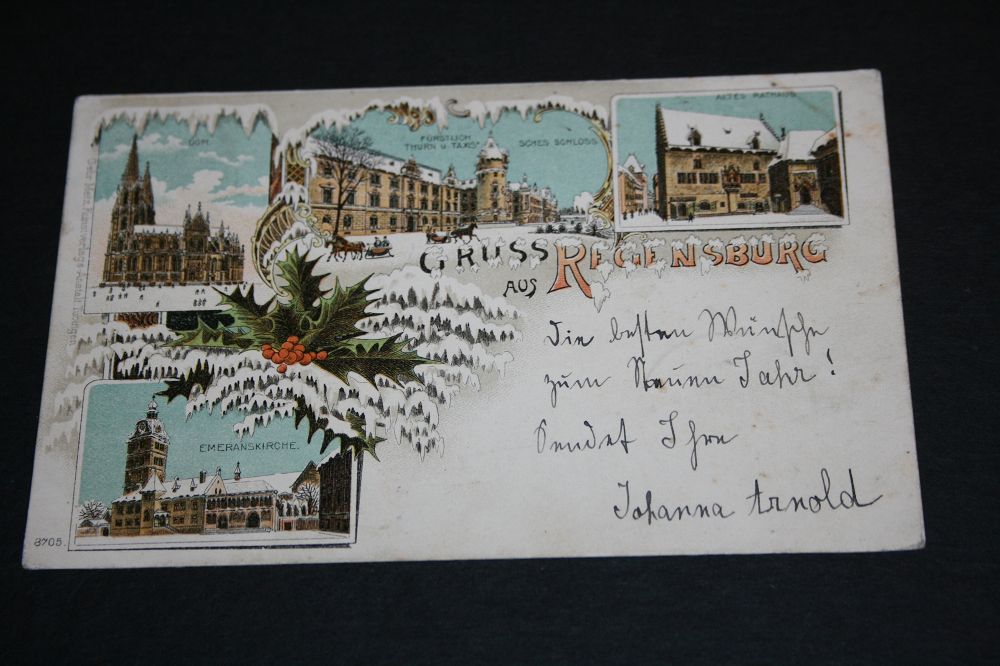 DOM.
FÜRSTLICH
THURN U. TAXIS'SCHES SCHLOSS
ALTES RATHAUS
GRUSS
AUS REGENSBURG
Die besten Wünsche
zum Neuen Jahr!
Sendet Ihre
Johanna Arnold
EMERANSKIRCHE.
3705.